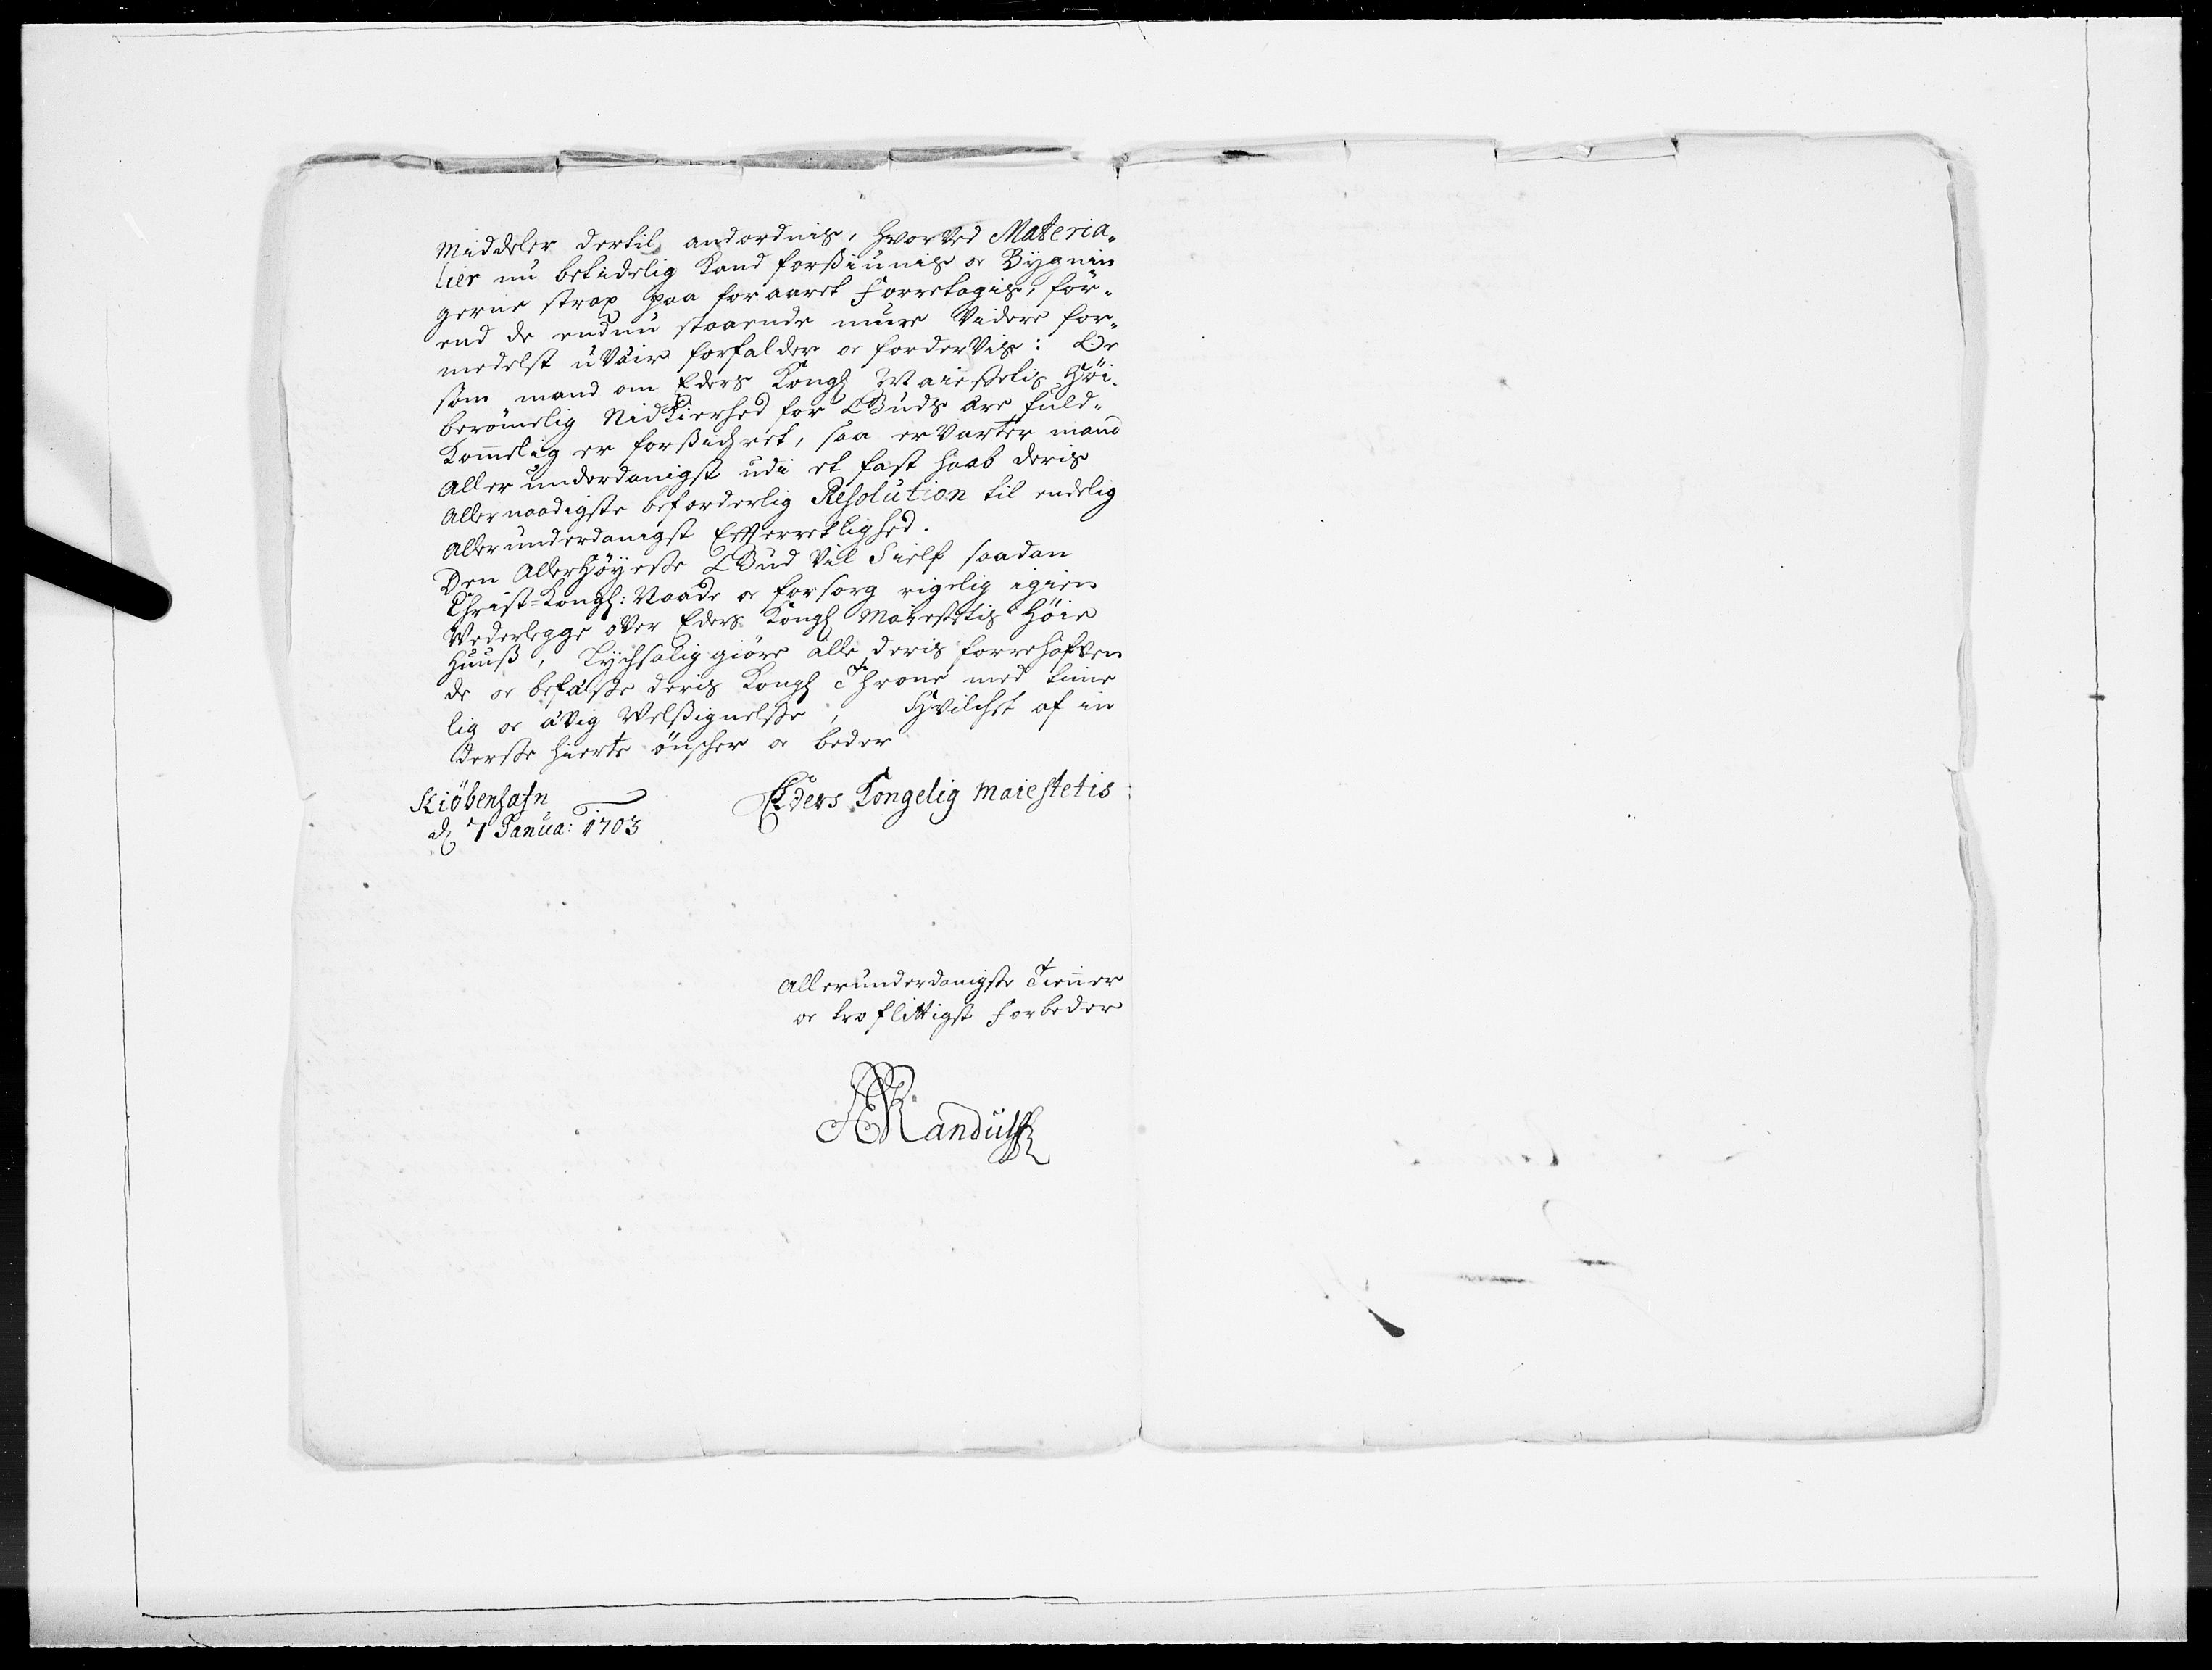 Middeler dertil andordnis, hvorved Materia„
lier nu betidelig kand forsiunis oc Bygnin
gerne strax paa foraaret forretagis, för„
end de endnu staaende mure videre for„
medelst uvair forfalder oc fordervis: Oc
som mand om Eders Kongl Maiestetis Höi„
berömelig Nidkierhed for Guds ære fuld„
kommelig er forsichret, saa ervarter mand
allerunderdanigst udi et fast haab deris
allernaadigste beforderlig Resolution til endelig
allerunderdanigst Efterretlighed.
Den Allerhöyeste Gud vil Sielf saadan
Christ-kongl: Naade oc forsorg rigelig igien
Vederlegge over Eders Kongl Maiestetis Höie
Huuß, Lychsalig giöre alle deris forrehafven
de oc befæste deris Kongl Throne med time
lig oc ævig Velsignelse, Hvilchet af in
derste hierte önscher oc beder
Kiöbenhafn
d 7 Janua: 1703
Eders Kongelig Maiestetis
allerunderdanigste Tienner
oc troflittigst forbeder
Randulff